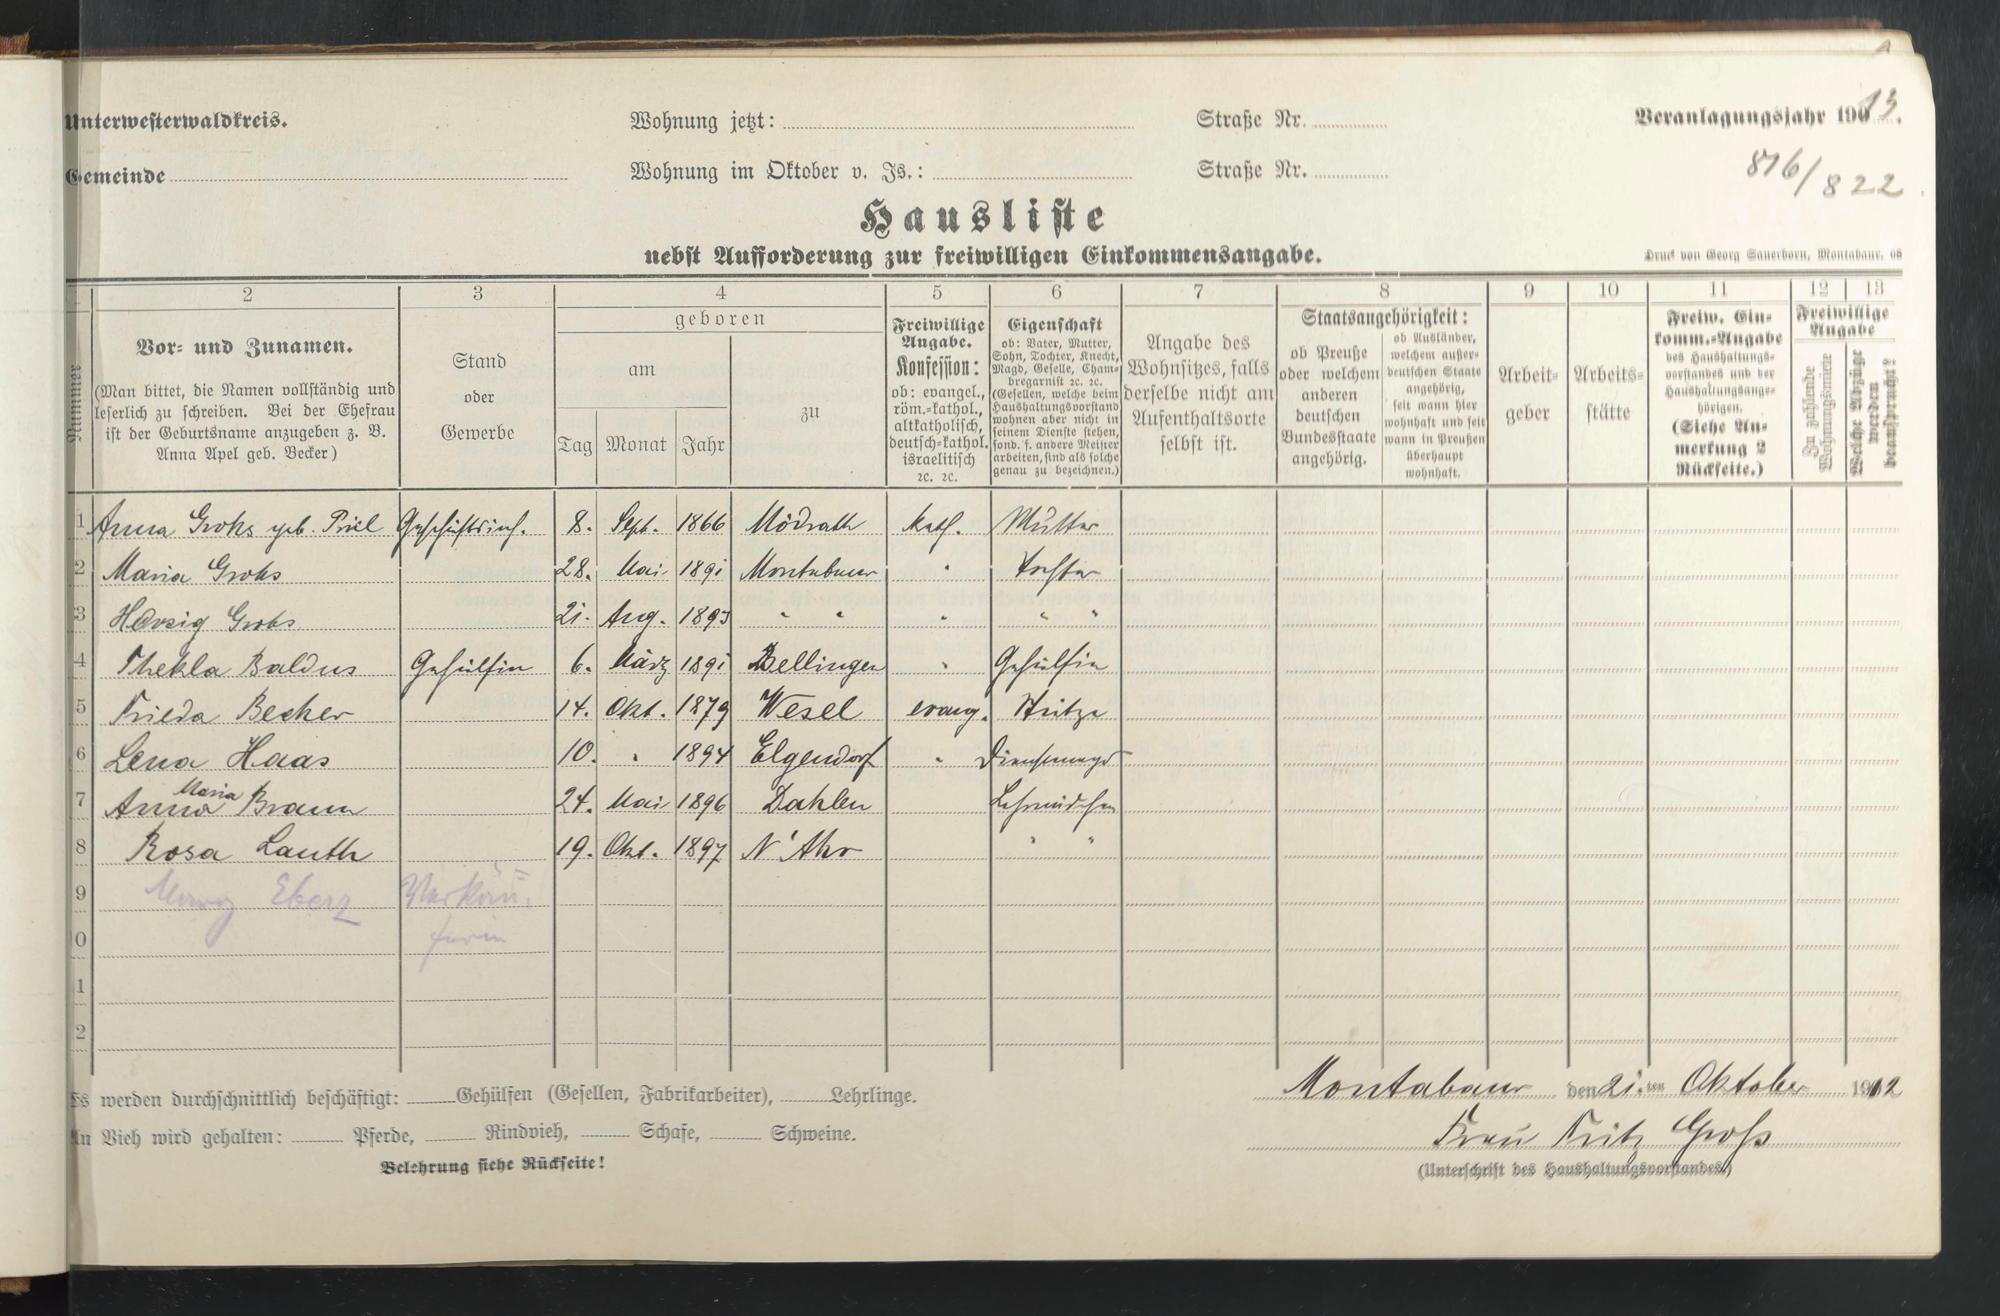 Unterwesterwaldkreis.
Wohnung jetzt:
Straße Nr.
Veranlagungsjahr 1913.
Gemeinde
Wohnung im Oktober v. Js.:
Straße Nr.
816/822
Hausliste
nebst Aufforderung zur freiwilligen Einkommensangabe.
Druck von Georg Sauerborn, Montabaur. 08
2 3 4 5 6 7 8 9 10 11 12 13
Nummer
Vor- und Zunamen.
(Man bittet, die Namen vollständig und
leserlich zu schreiben. Bei der Ehefrau
ist der Geburtsname anzugeben z. B.
Anna Apel geb. Becker)
Stand
oder
Gewerbe
geboren
am
Tag Monat Jahr
zu
Freiwillige
Angabe.
Konfession:
ob: evangel.,
röm.-kathol.,
altkatholisch,
deutsch-kathol.
israelitisch
ꝛc. ꝛc.
Eigenschaft
ob: Vater, Mutter,
Sohn, Tochter, Knecht,
Magd, Geselle, Cham-
bregarnist ꝛc. ꝛc.
(Gesellen, welche beim
Haushaltungsvorstand
wohnen aber nicht in
seinem Dienste stehen,
sond. f. andere Meiner
arbeiten, sind als solche
genau zu bezeichnen.)
Angabe des
Wohnsitzes, falls
derselbe nicht am
Aufenthaltsorte
selbst ist.
Staatsangehörigkeit:
ob Preuße
oder welchem
anderen
deutschen
Bundesstaate
angehörig.
ob Ausländer,
welchem außer-
deutschen Staate
angehörig,
seit wann hier
wohnhaft und seit
wann in Preußen
überhaupt
wohnhaft.
Arbeit-
geber
Arbeits-
stätte
Freiw. Ein-
komm.-Angabe
des Haushaltungs-
vorstandes und der
Haushaltungsange-
hörigen.
(Siehe An-
merkung 2
Rückseite.)
Freiwillige
Angabe
Zu zahlende
Wohnungsmiete
Welche Abzüge
werden
beansprucht?
1 Anna Grohs geb. Priel Geschäftsinh. 8. Sept. 1866 Mödrath kath. Mutter
2 Maria Grohs 28. Mai 1891 Montabaur " Tochter
3 Hedwig Grohs 21. Aug. 1893 " " " " "
4 Thekla Baldus Gehülfin 6. März 1891 Bellingen " Gehülfin
5 Frieda Becker 14. Okt. 1879 Wesel evang. Stütze
6 Lena Haas 10. " 1894 Elgendorf " Dienstmagd
7 Anna Maria Braun 24. Mai 1896 Dahlen Lehrmädchen
8 Rosa Lauth 19. Okt. 1897 N'Ahr " "
9 Eberz Verkäu-
0 ferin
1
2
Es werden durchschnittlich beschäftigt: Gehülfen (Gesellen, Fabrikarbeiter), Lehrlinge.
An Vieh wird gehalten: Pferde, Rindvieh, Schafe, Schweine.
Belehrung siehe Rückseite!
Montabaur den 21. ten Oktober 1912
Frau Fritz Groß
(Unterschrift des Haushaltungsvorstandes)